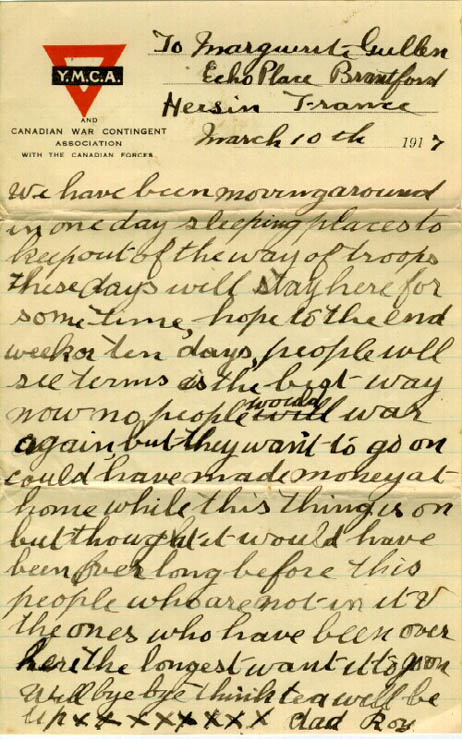 To Marguerite Gullen
Echo Place Brantford
Hersin France
March 10th 1917
Y.M.C.A.
AND
CANADIAN WAR CONTINGENT
ASSOCIATION
WITH THE CANADIAN FORCES
We have been moving around
in one day sleeping places to
keep out of the way of troops
these days will stay here for
some time, hope to the end
week or ten days, people will
see terms is the best way
now no people would war
again but they want to go on
could have made money at
home while this thing is on
but thought it would have
been over long before this
people who are not in it &
the ones who have been over
here the longest want it to go on
Well bye bye think tea will be
up xx x x x x x x dad Roy